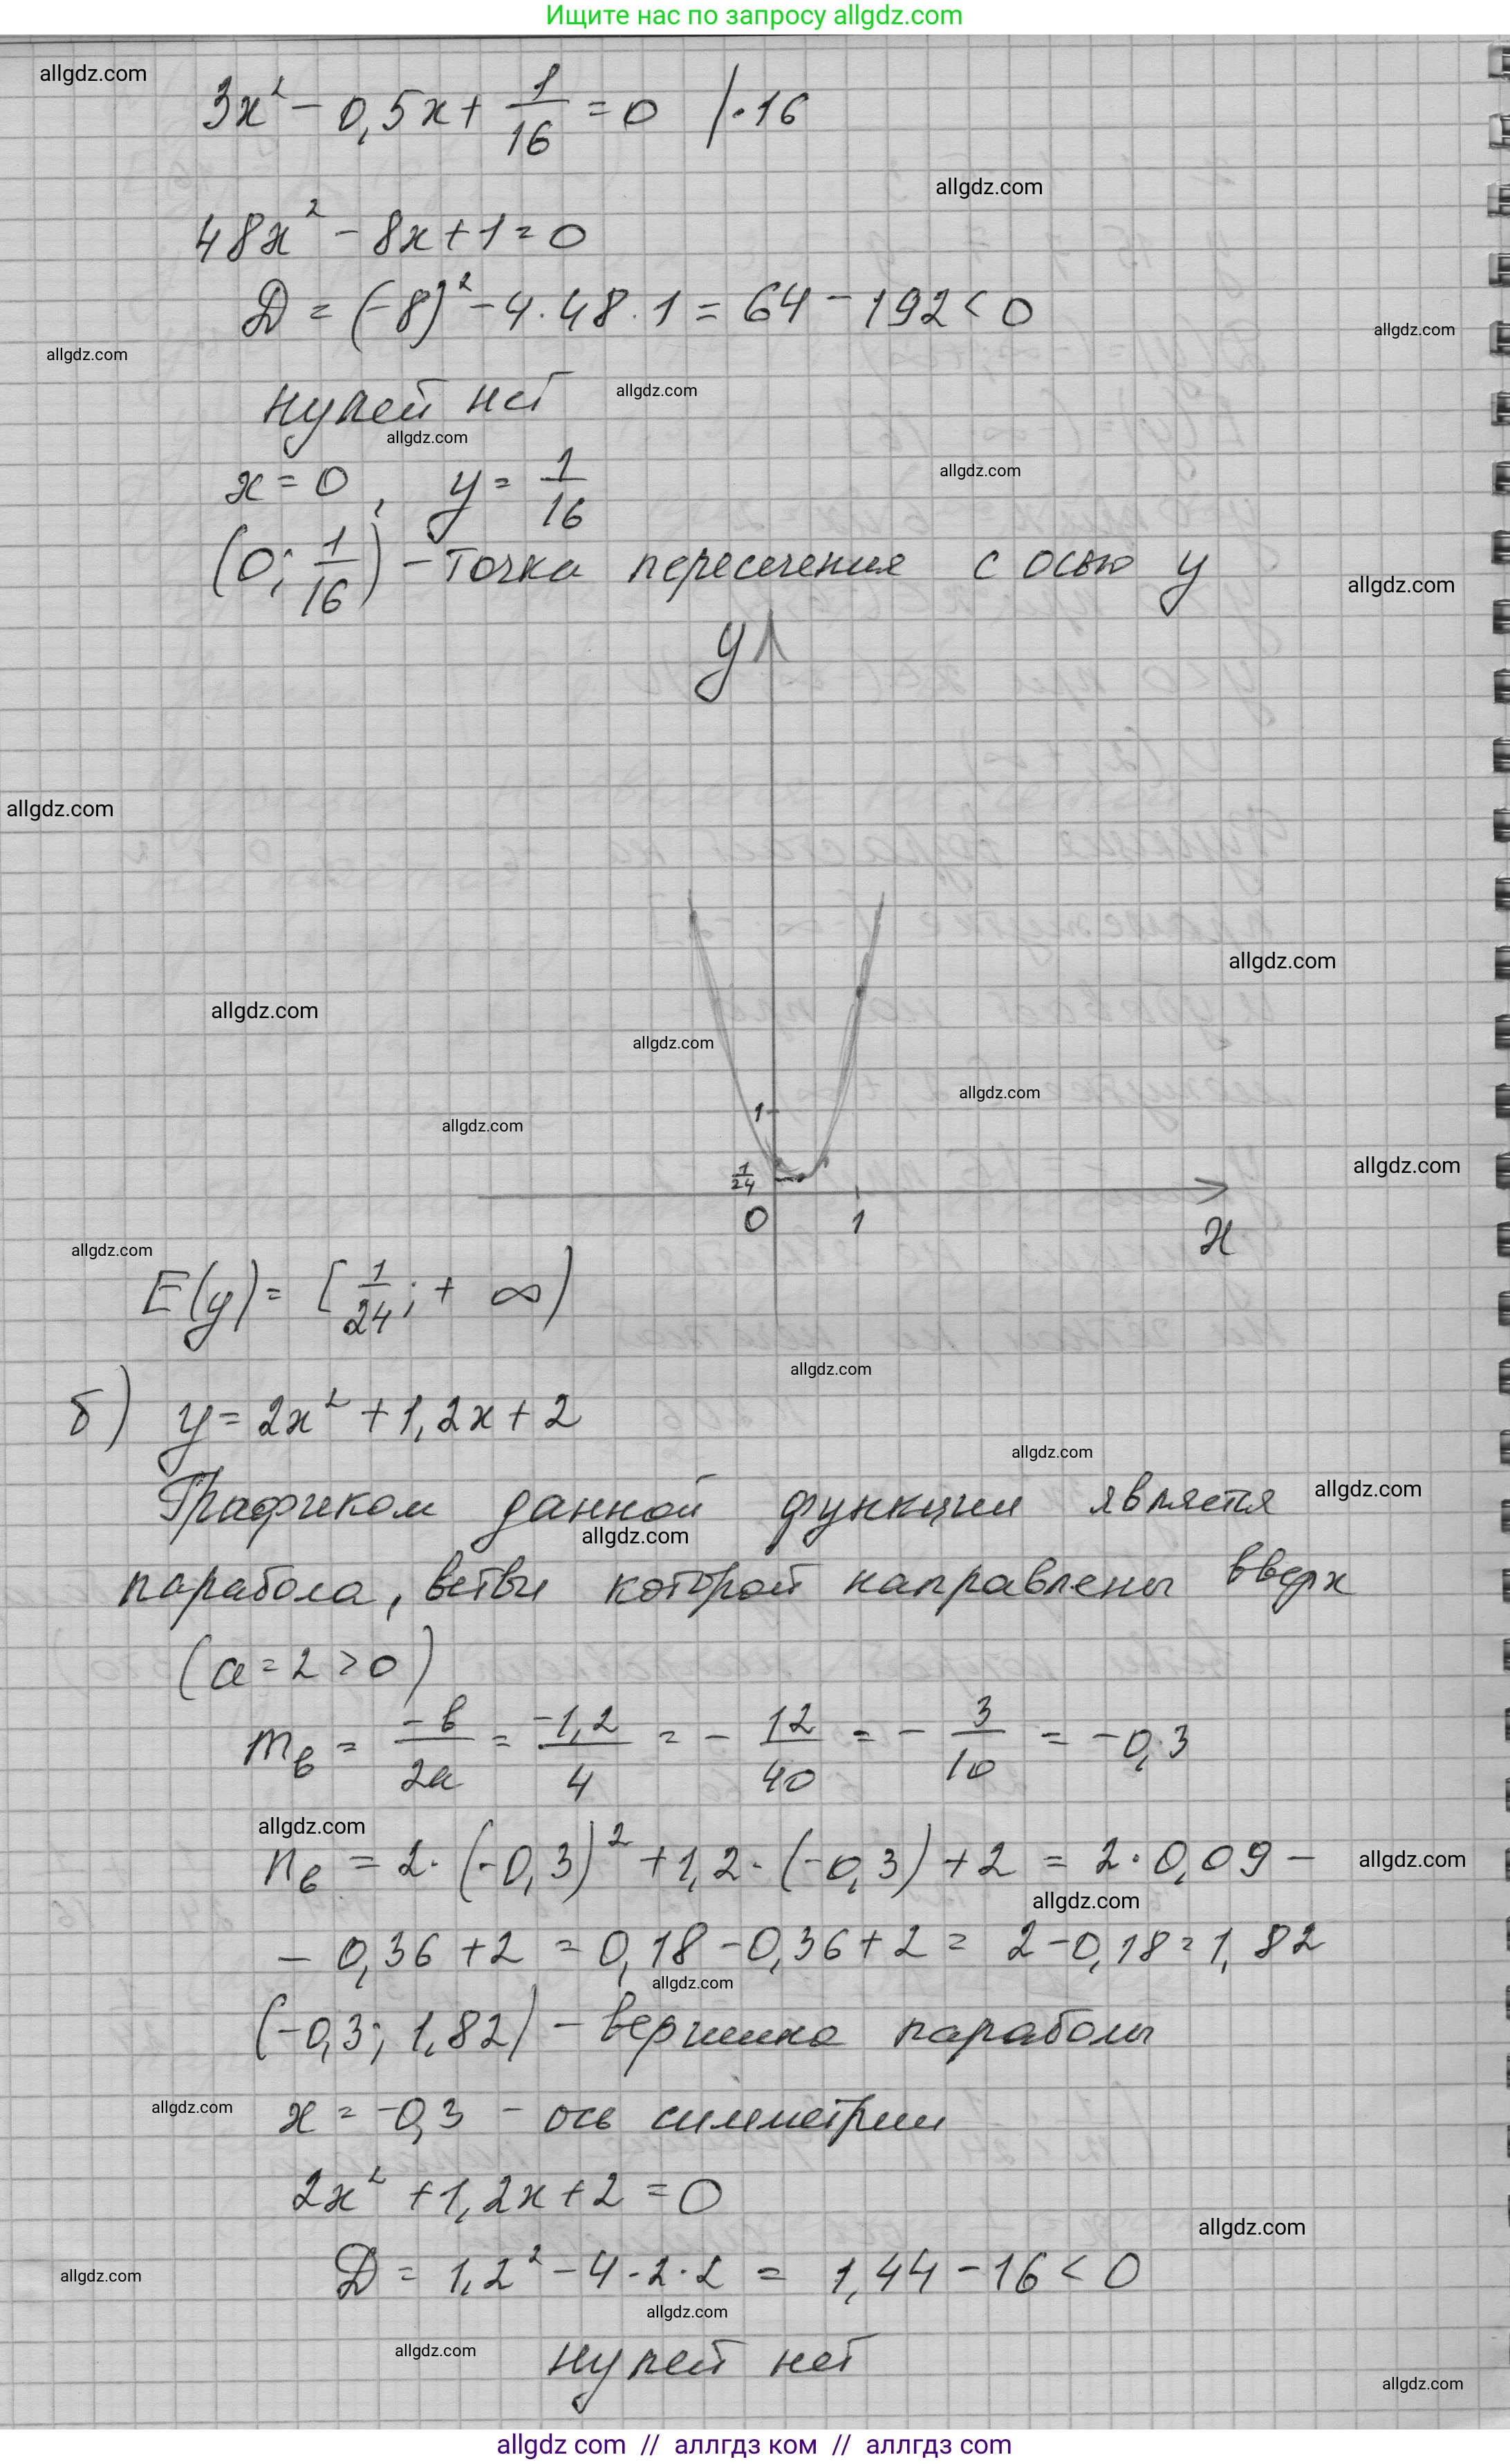 Ищите нас по запросу allgdz.com
allgdz.com
3x² - 0,5x + 1/16 = 0 /·16
allgdz.com
48x² - 8x + 1 = 0
D = (-8)² - 4·48·1 = 64 - 192 < 0
allgdz.com
allgdz.com
нулей нет
allgdz.com
allgdz.com
x = 0, y = 1/16
allgdz.com
(0; 1/16) - точка пересечения с осью y
allgdz.com
y
allgdz.com
allgdz.com
allgdz.com
allgdz.com
allgdz.com
1
allgdz.com
allgdz.com
1/24
0 1 x
allgdz.com
E(y) = [1/24; + ∞)
allgdz.com
б) y = 2x² + 1,2x + 2
allgdz.com
Графиком данной функции является
allgdz.com
allgdz.com
парабола, ветви которой направлены вверх
(a = 2 > 0)
mв = -в/2a = -1,2/4 = - 12/40 = - 3/10 = -0,3
allgdz.com
nв = 2·(-0,3)² + 1,2·(-0,3) + 2 = 2·0,09 -
allgdz.com
allgdz.com
- 0,36 + 2 = 0,18 - 0,36 + 2 = 2 - 0,18 = 1,82
allgdz.com
(-0,3; 1,82) - вершина параболы
allgdz.com
x = -0,3 - ось симметрии
2x² + 1,2x + 2 = 0
allgdz.com
D = 1,2² - 4·2·2 = 1,44 - 16 < 0
allgdz.com
allgdz.com
allgdz.com
нулей нет
allgdz.com
allgdz com // аллгдз ком // аллгдз com